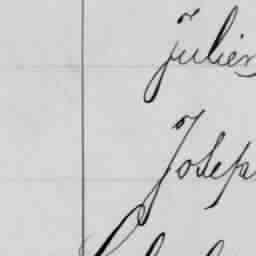 Julien
Josep